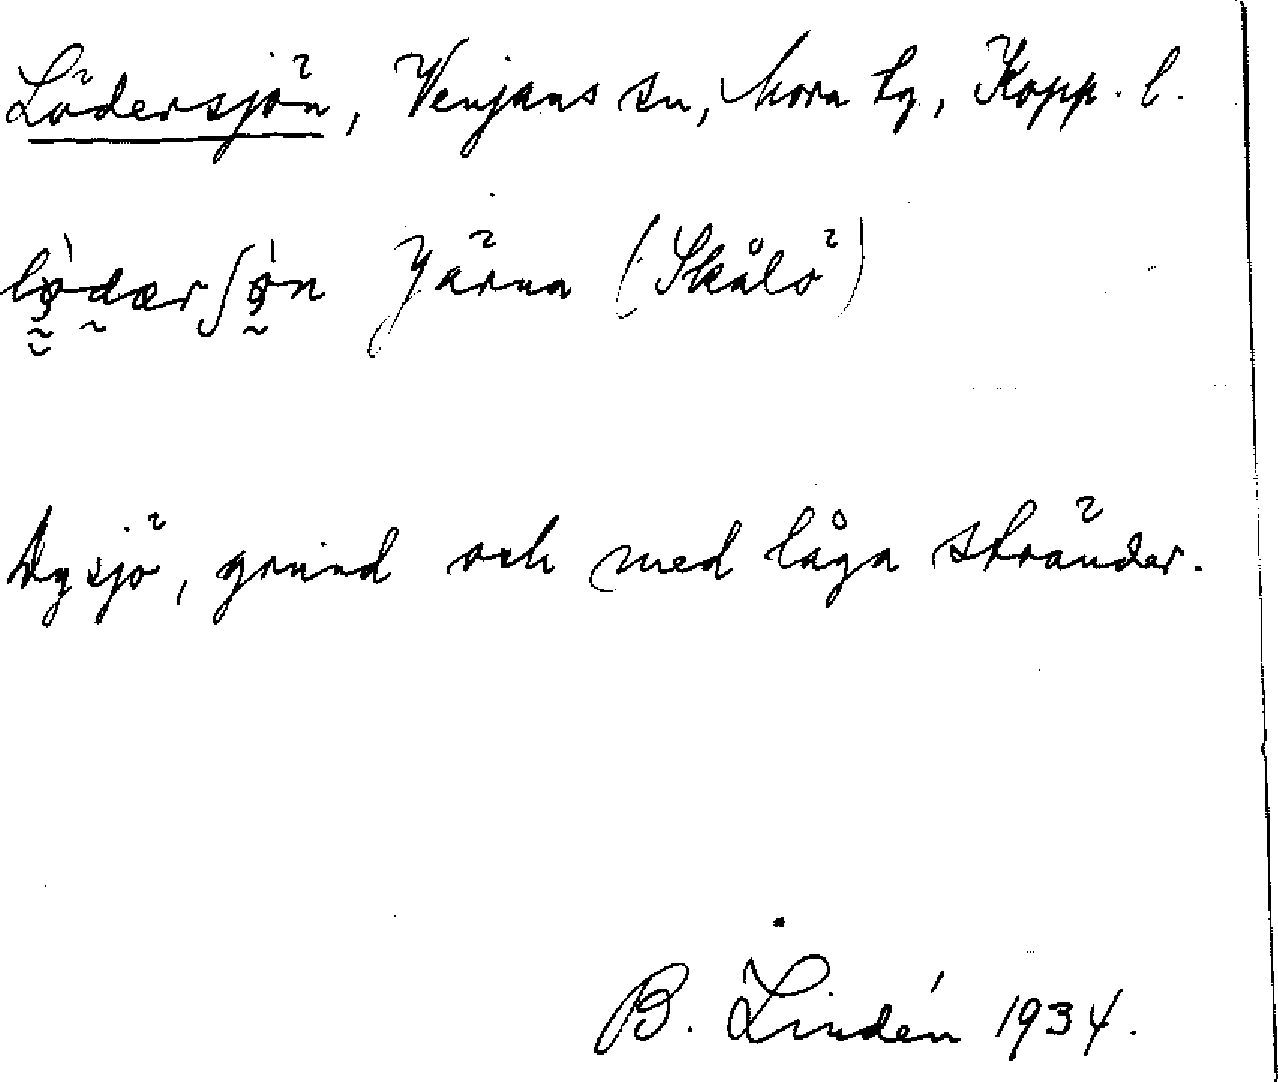 Lödersjön, Venjans sn, Mora tg, Kopp. l.
Järna (Skålö)
Dysjö, grund och med låga stränder.
B. Lindén 1934.